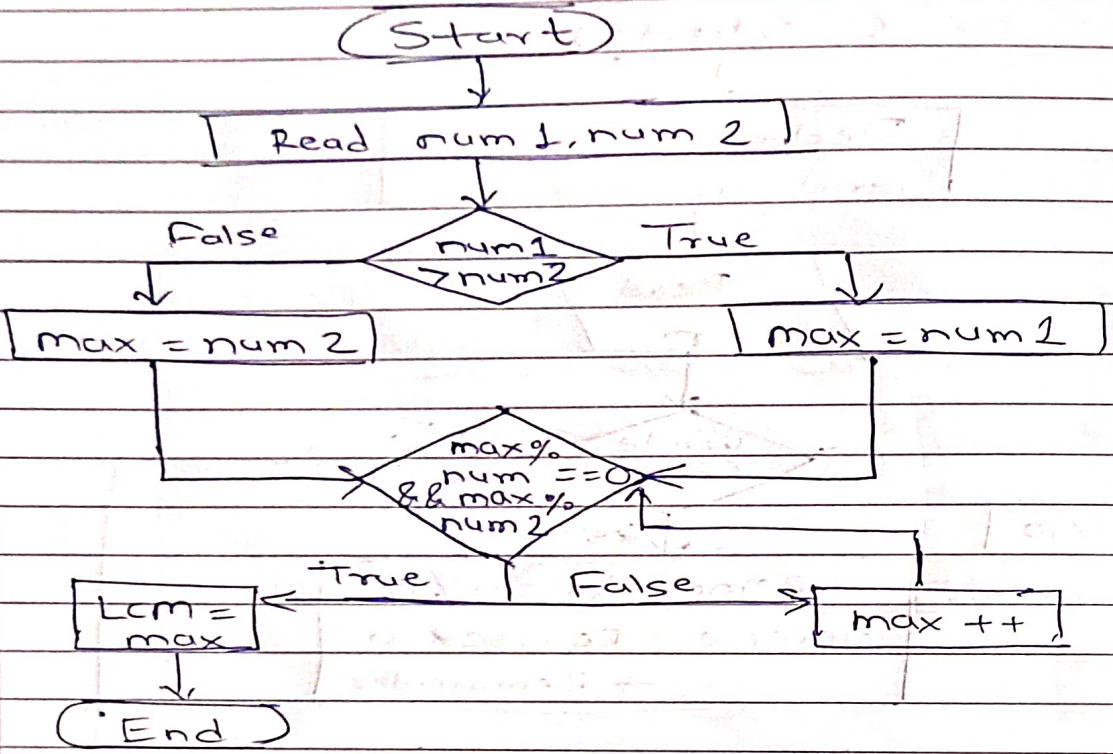 Start
Read num 1, num 2
False
num1
True
>num2
max = num 2
max = num 1
max %
num ==0
&& max %
num 2
True
False
LCM =
max
max ++
End